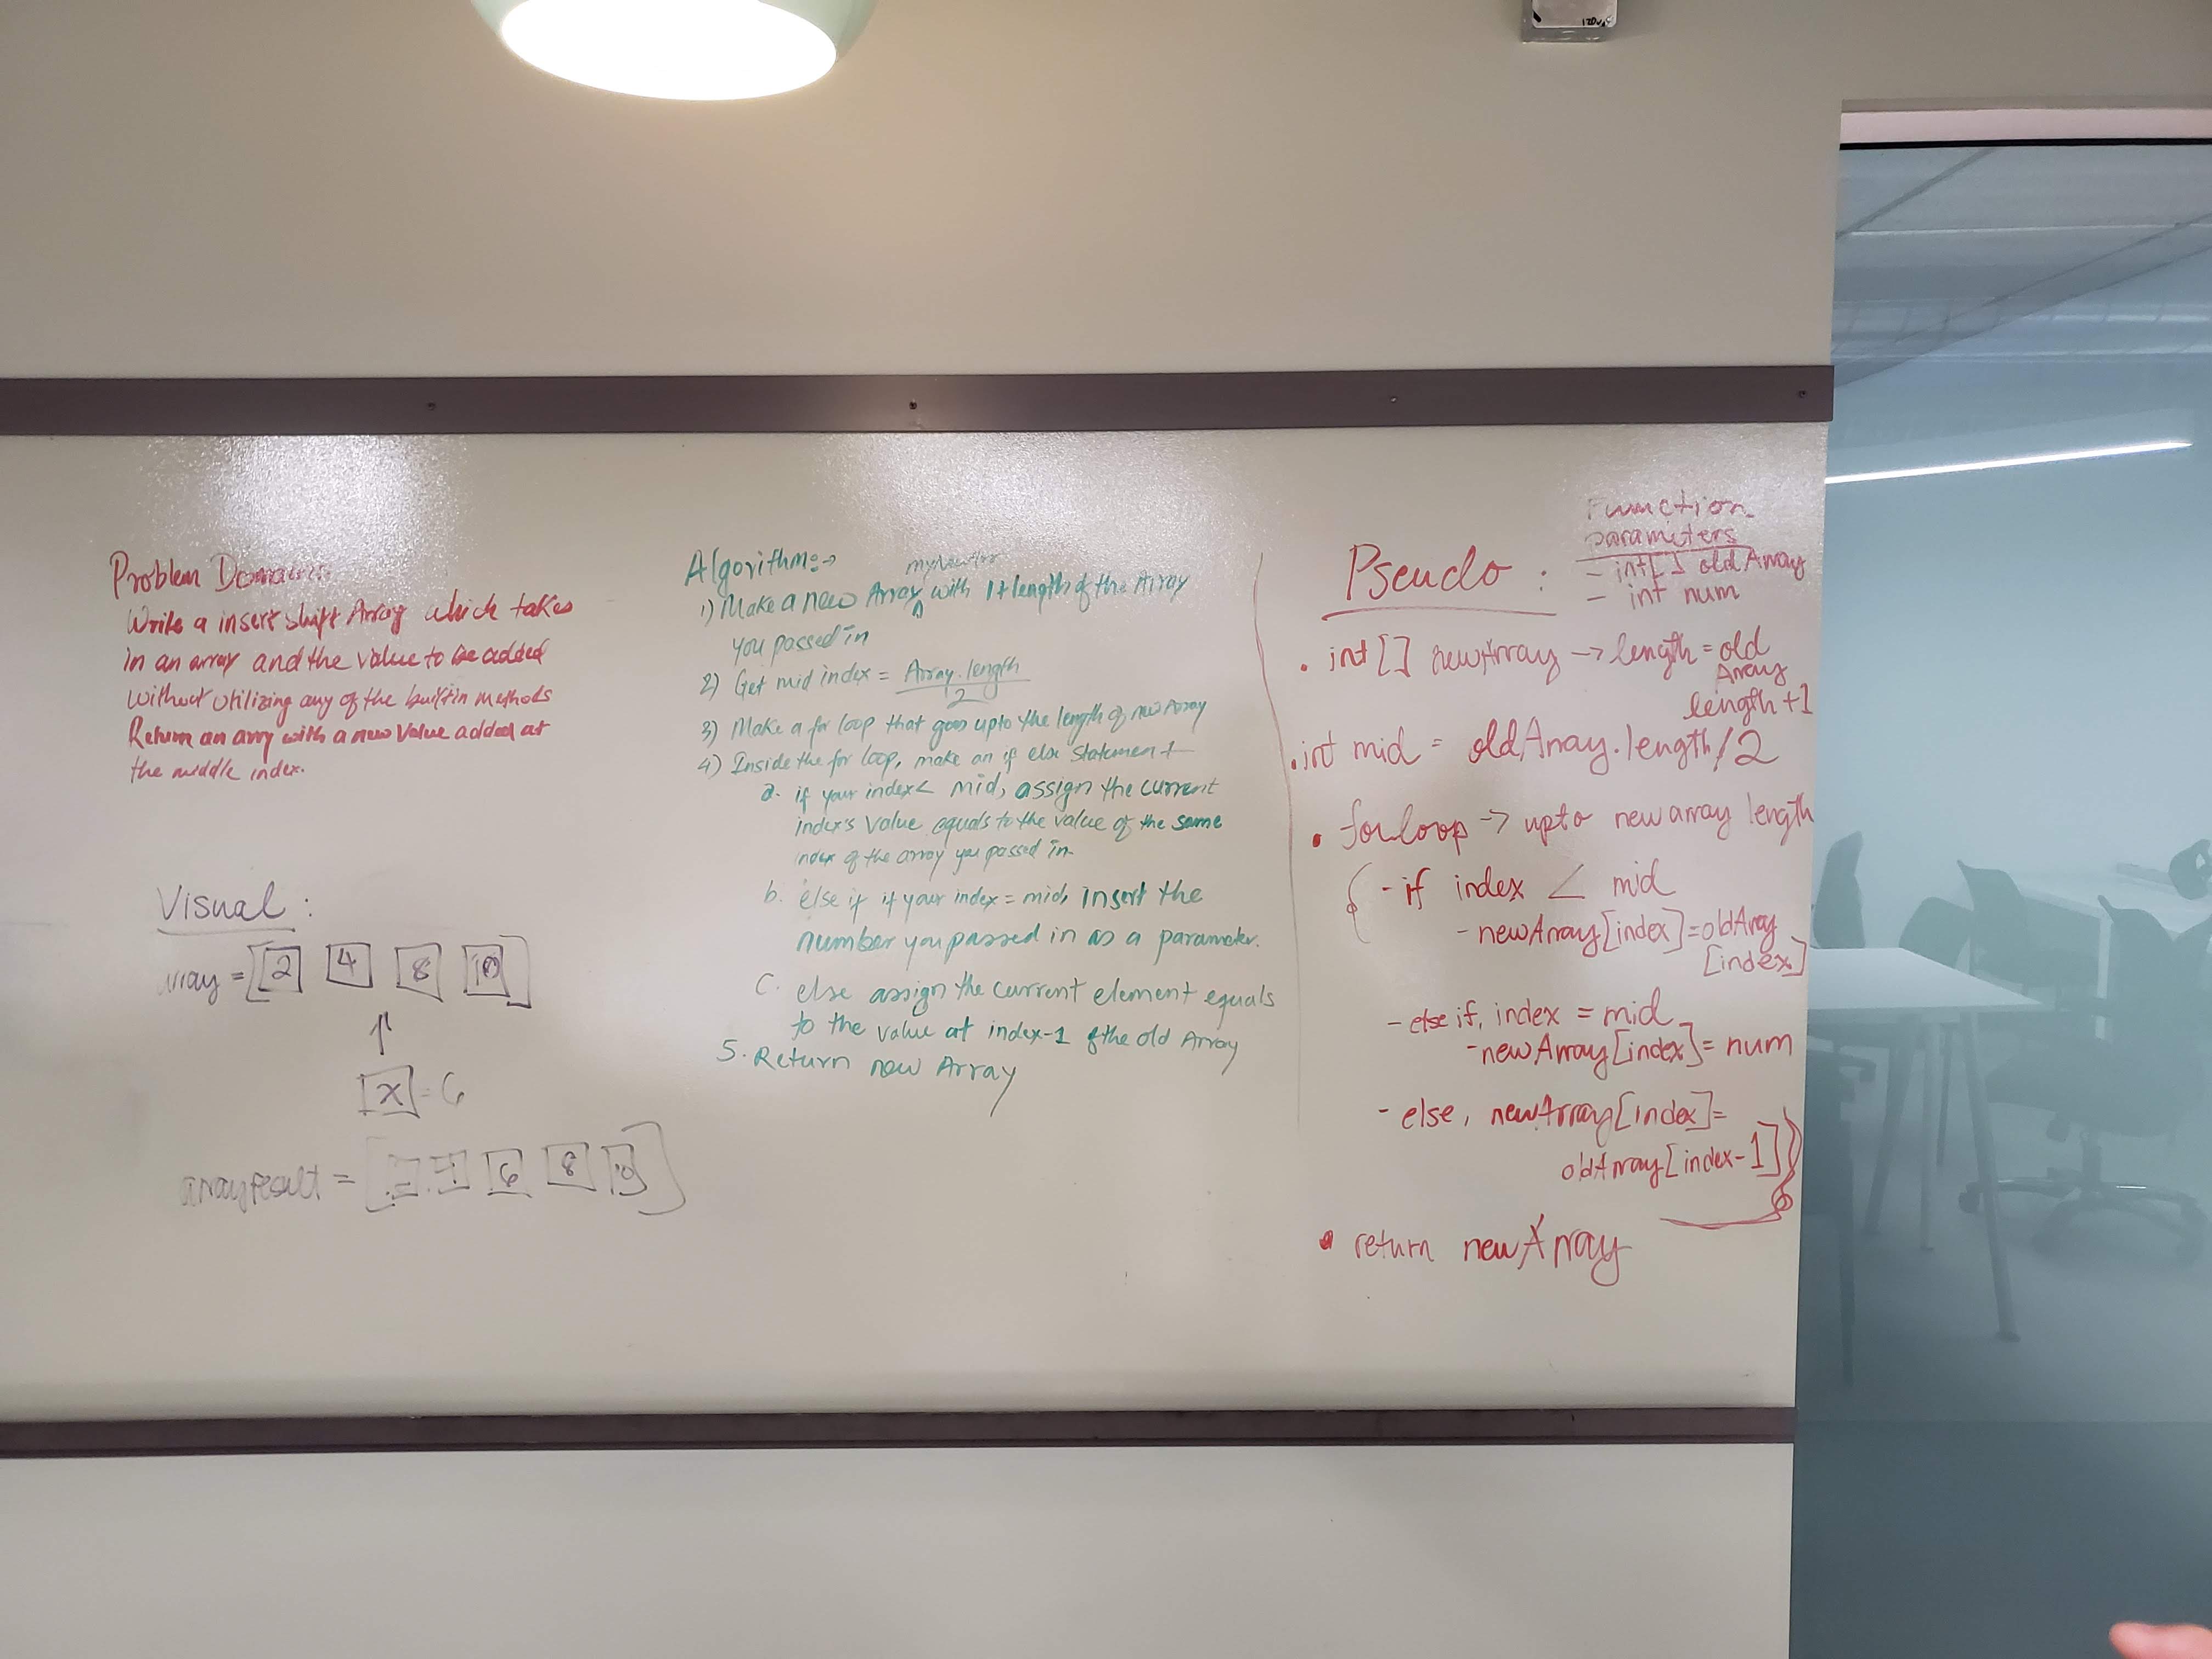 Problem Domain:
Write a insert shift Array which takes
in an array and the value to be added
without utilizing any of the builtin methods
Return an arry with a new value added at
the middle index.
Visual :
array = [ 2 4 8 10 ]
x = 6
arrayresult = [ 6 8 10 ]
Algorithm:→
1) Make a new Array with 1+length of the Array
you passed in
2) Get mid index = Array.length
2
3) Make a for loop that goes upto the length of new Array
4) Inside the for loop, make an if else statement
a. if your index < mid, assign the current
index's value equals to the value of the same
index of the array you passed in
b. else if if your index = mid, insert the
number you passed in as a parameter.
C. else assign the current element equals
to the value at index-1 of the old Array
5. Return new Array
Function
parameters
- int[] oldArray
- int num
Pseudo :
• int[] newArray → length = old
Array
length +1
• int mid = oldArray.length/2
• for loop → upto new array length
{ - if index < mid
- newArray[index]=oldArray
[index]
- else if, index = mid
- newArray[index]= num
- else, newArray[index]=
oldArray[index-1] }
• return newArray